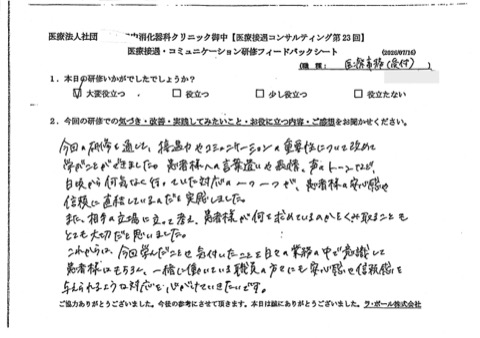 医療法人社団 中消化器科クリニック御中【医療接遇コンサルティング第23回】
医療接遇・コミュニケーション研修フィードバックシート
(2026/07/16)
(職種: 医療事務(受付))
1. 本日の研修いかがでしたでしょうか?
☑ 大変役立つ □ 役立つ □ 少し役立つ □ 役立たない
2. 今回の研修での気づき・改善・実践してみたいこと・お役に立つ内容・ご感想をお聞かせください。
今回の研修を通して、接遇力やコミュニケーションの重要性について改めて
学ぶことができました。患者様への言葉遣いや表情、声のトーンなど、
日頃から何気なく行っていた対応の一つ一つが、患者様の安心感や
信頼に直結しているのだと実感しました。
また、相手の立場に立って考え、患者様が何を求めているのかをくみ取ることも
とても大切だと思いました。
これからは、今回学んだことや気付いたことを日々の業務の中で意識して
患者様はもちろん、一緒に働いている職員の方々にも安心感や信頼感を
与えられるような対応を心がけていきたいです。
ご協力ありがとうございました。今後の参考にさせて頂きます。本日は誠にありがとうございました。ラ・ポール株式会社